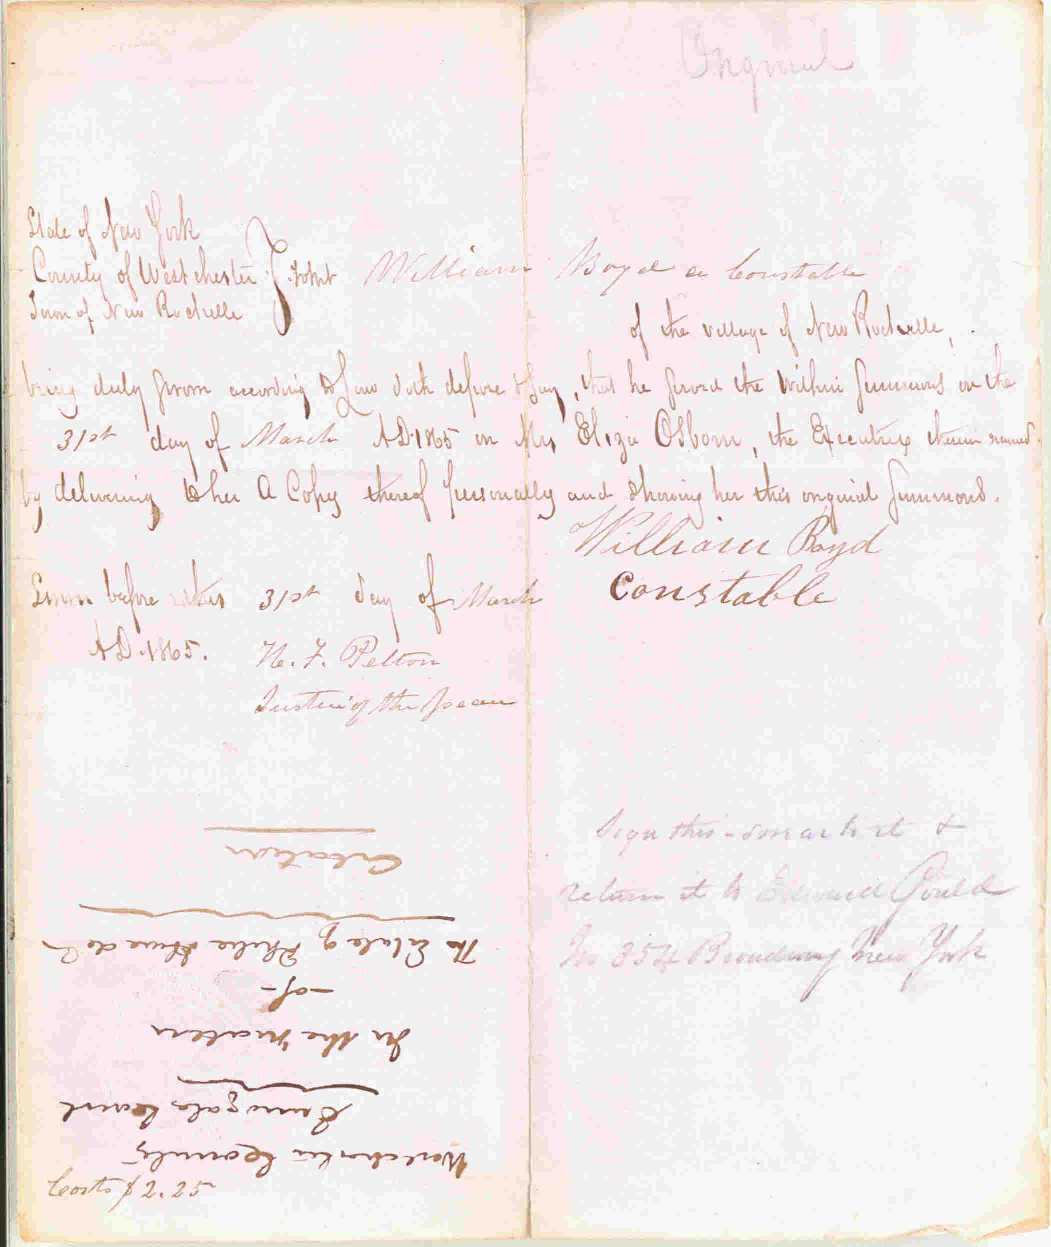 Original
State of New York
County of Westchester
Town of New Rochelle
William Boyd a Constable
of the village of New Rochelle,
being duly sworn according to Law doth depose & say, that he served the within Summons on the
31st day of March AD 1865 on Mrs Eliza Osborn, the Executrix therein named
by delivering to her a Copy thereof personally and showing her this original Summons.
William Boyd
Constable
Sworn before me this 31st day of March
AD. 1865.
Pelton
Justice of the Peace
Sign this & 
return it to Edward Gould
No 354 Broadway New York
Westchester County
Surrogates Court
In the matter
-of-
The Estate of
Citation
Costs $2.25